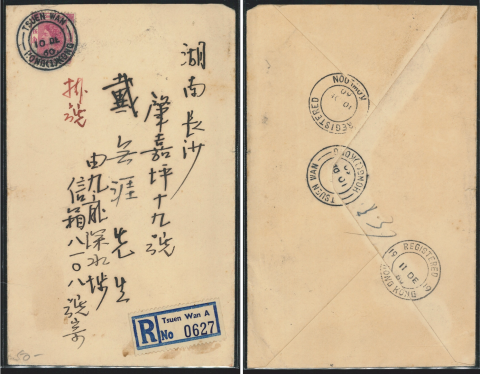 TSUEN WAN
10 DE
60
HONG KONG
湖南長沙
肇嘉坪十九號
戴無涯先生
掛號
由九龍深水埗
信箱八一〇八號寄
R
Tsuen Wan A
No 0627
50-
KOWLOON
REGISTERED
TSUEN WAN
HONG KONG
REGISTERED
11 DE
HONG KONG